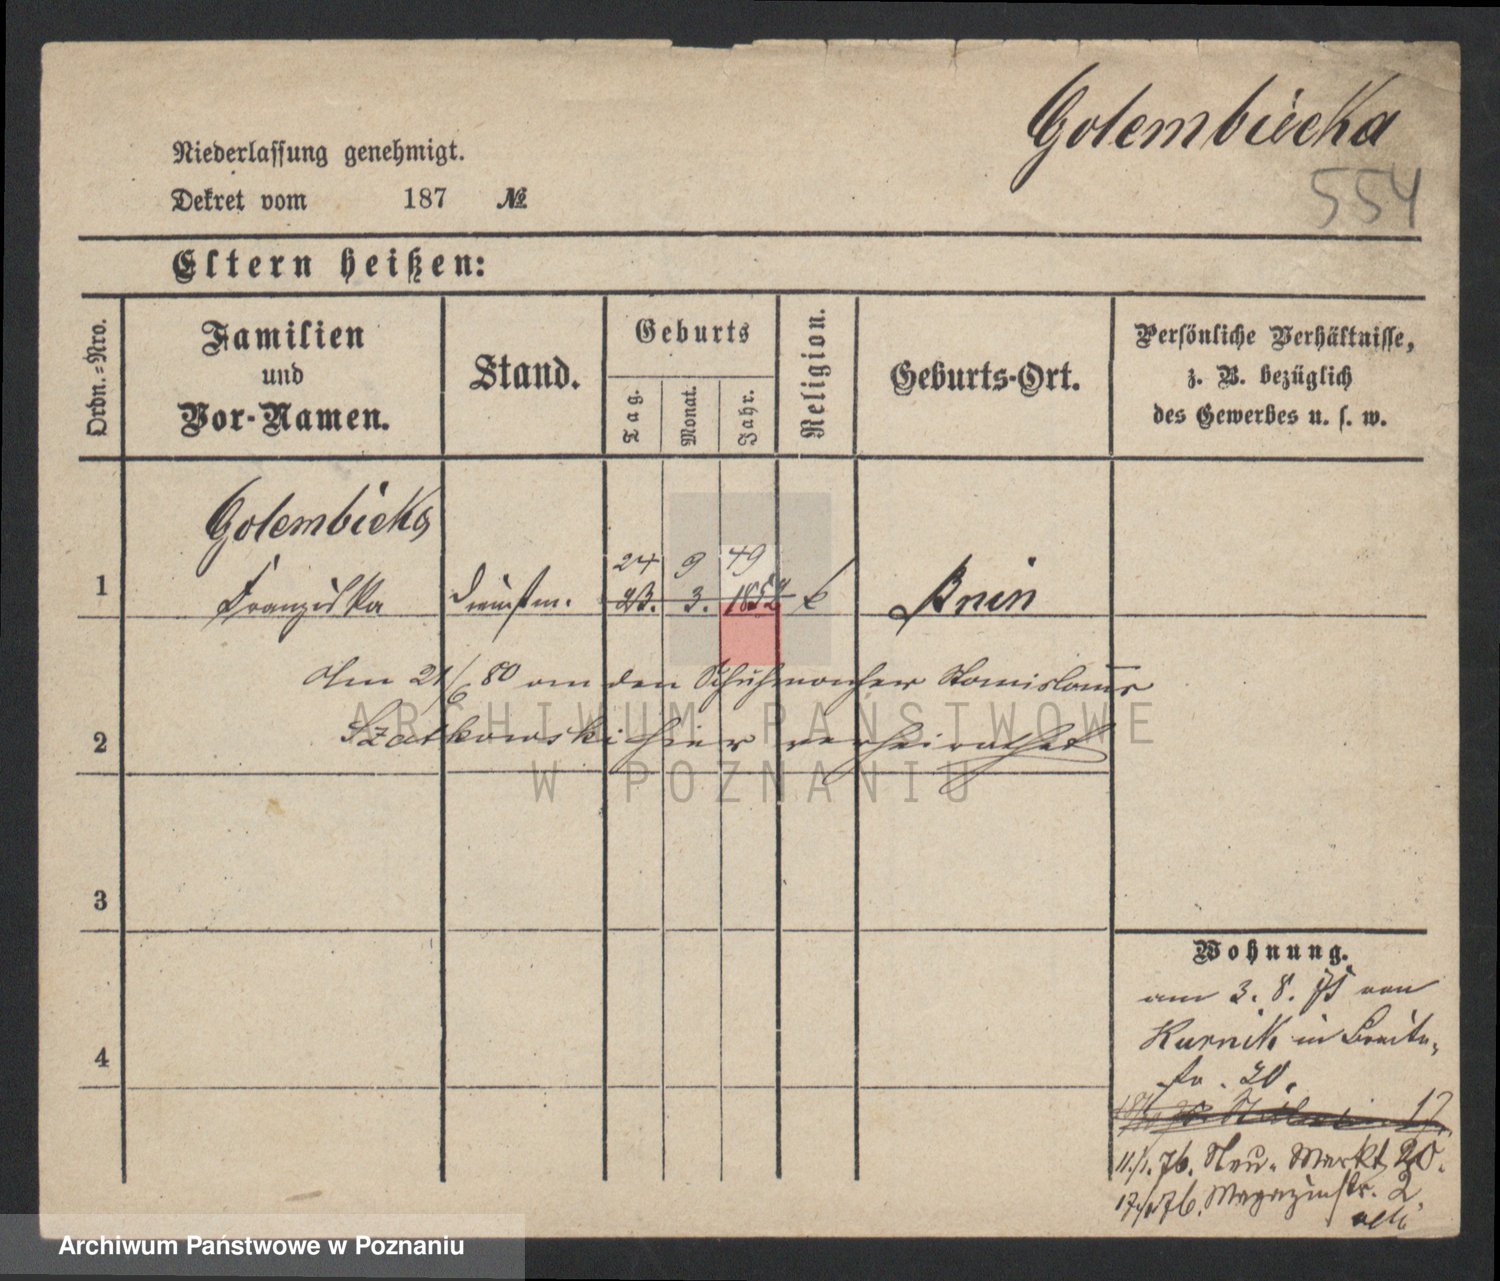 Golembiecka
554
Niederlassung genehmigt.
Dekret vom 187 №
Eltern heißen:
Ordn.=Nro.
Familien
und
Vor-Namen.
Stand.
Geburts
Tag.
Monat.
Jahr.
Religion.
Geburts-Ort.
Persönliche Verhältnisse,
z. B. bezüglich
des Gewerbes u. s. w.
Golembieka
24 9 49
1 Franziska Dienstm. 23. 3. 1852 k Bnin
Am 21/6 80 an den Schuhmacher Stanislaus
2 Szatkowski hier verheirathet
3
4
Wohnung.
am 3. 8. 75 von
Kurnik in Breite-
str. 20.
17.
11./1. 76. Neu-Markt 20.
17/ 76. Magazinstr. 2
ARCHIWUM PAŃSTWOWE
W POZNANIU
Archiwum Państwowe w Poznaniu